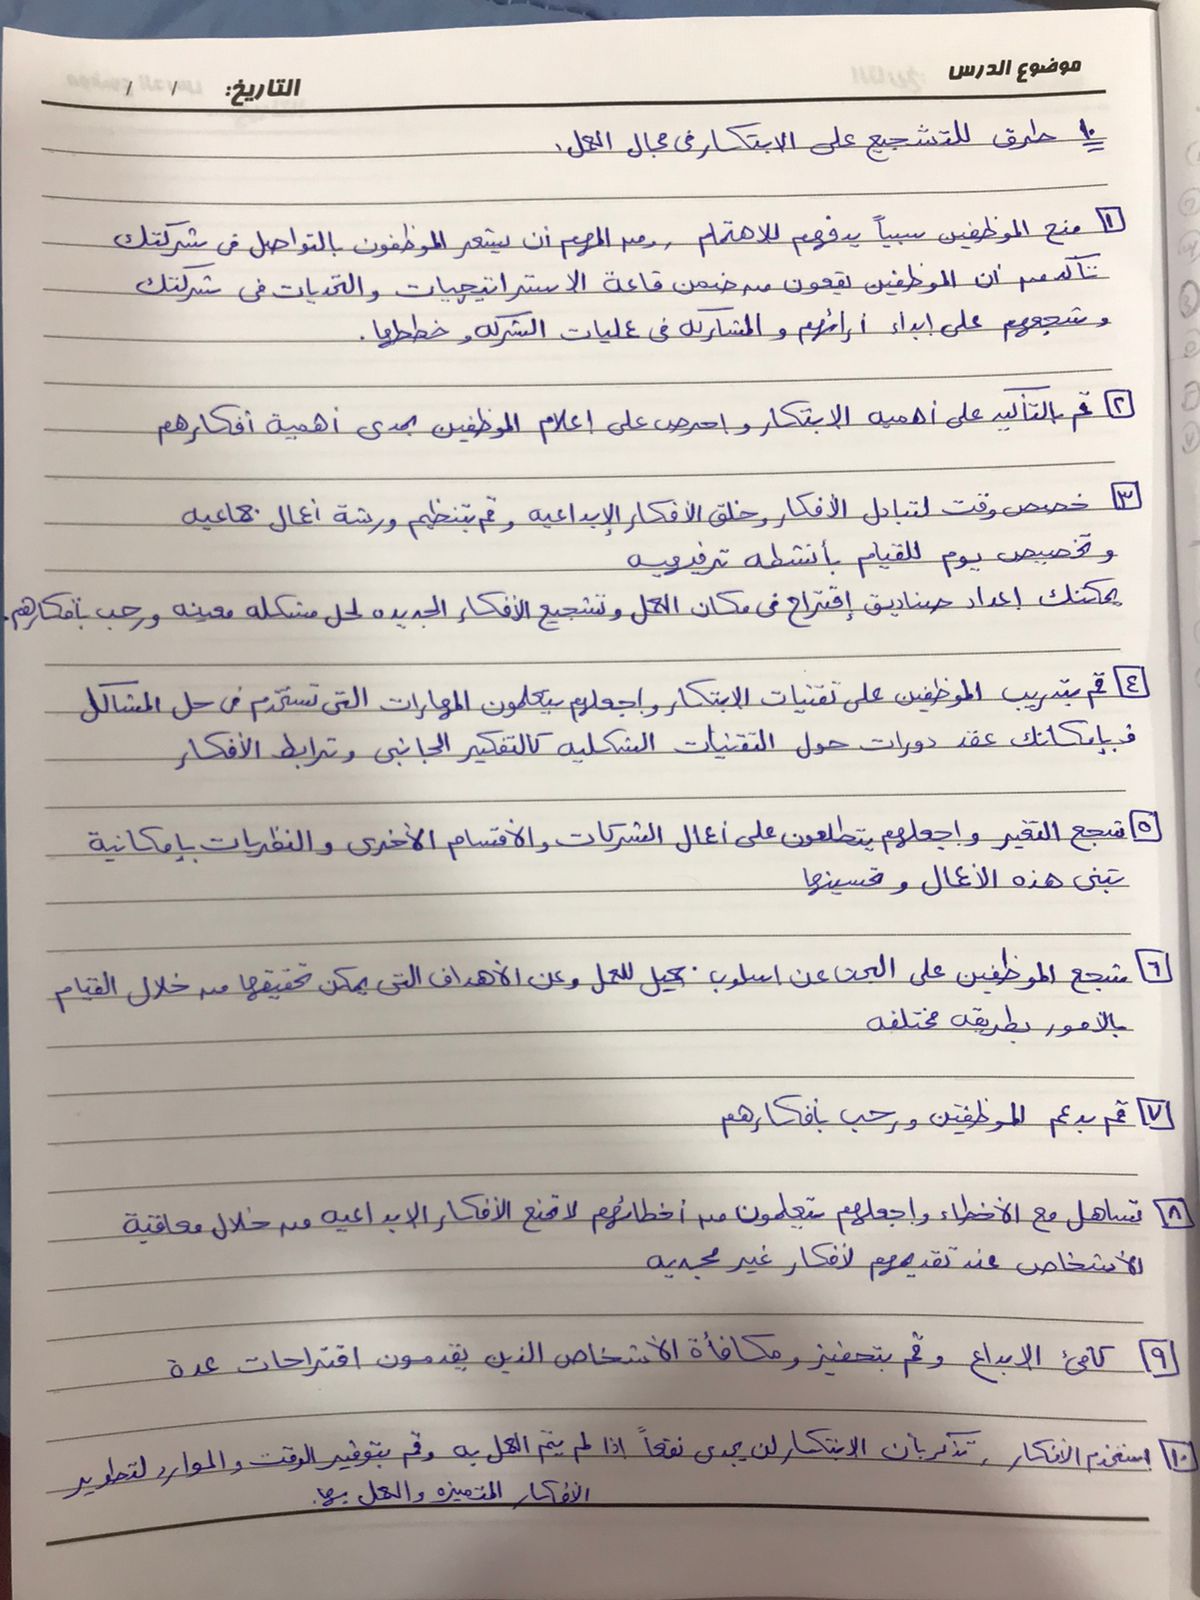 موضوع الدرس
التاريخ: / /
١٠ طرق للتشجيع على الابتكار في مجال العمل:
١ منح الموظفين سبباً يدفعهم للاهتمام ، ومن المهم أن يشعر الموظفون بالتواصل في شركتك
تأكد من أن الموظفين يقعون من ضمن قاعة الاستراتيجيات والتحديات في شركتك
وشجعهم على إبداء أرائهم والمشاركه في عمليات الشركه وخططها.
٢ قم بالتأكيد على أهميه الابتكار واحرص على إعلام الموظفين بمدى أهمية أفكارهم
٣ خصص وقت لتبادل الأفكار وخلق الأفكار الإبداعيه وقم بتنظيم ورشة أعمال جماعيه
وتخصيص يوم للقيام بأنشطه ترفيهيه
يمكنك إعداد صناديق إقتراح في مكان العمل وتشجيع الأفكار الجديده لحل مشكله معينه ورحب بأفكارهم.
٤ قم بتدريب الموظفين على تقنيات الابتكار واجعلهم يتعلمون المهارات التى تستخدم فى حل المشاكل
فبإمكانك عقد دورات حول التقنيات الشكليه كالتفكير الجانبى وترابط الأفكار
٥ شجع التغير واجعلهم يتطلعون على أعمال الشركات والأقسام الأخرى والنظريات بإمكانية
تبنى هذه الأعمال وتحسينها
٦ شجع الموظفين على البحث عن اسلوب جميل للعمل وعن الأهداف التى يمكن تحقيقها من خلال القيام
بالأمور بطريقه مختلفه
٧ قم بدعم الموظفين ورحب بأفكارهم
٨ تساهل مع الأخطاء واجعلهم يتعلمون من أخطائهم لا تمنع الأفكار الابداعيه من خلال معاقبة
الأشخاص عند تقديمهم لأفكار غير مجديه
٩ كافئ الابداع وقم بتحفيز ومكافأة الأشخاص الذين يقدمون اقتراحات عدة
١٠ استخدم الأفكار ، تذكر بأن الابتكار لن يجدى نفعاً اذا لم يتم العمل به وقم بتوفير الوقت والموارد لتطوير
الأفكار المتميزه والعمل بها.